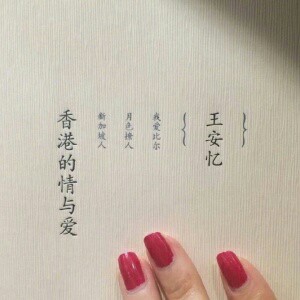 王安忆
我爱比尔
月色撩人
新加坡人
香港的情与爱